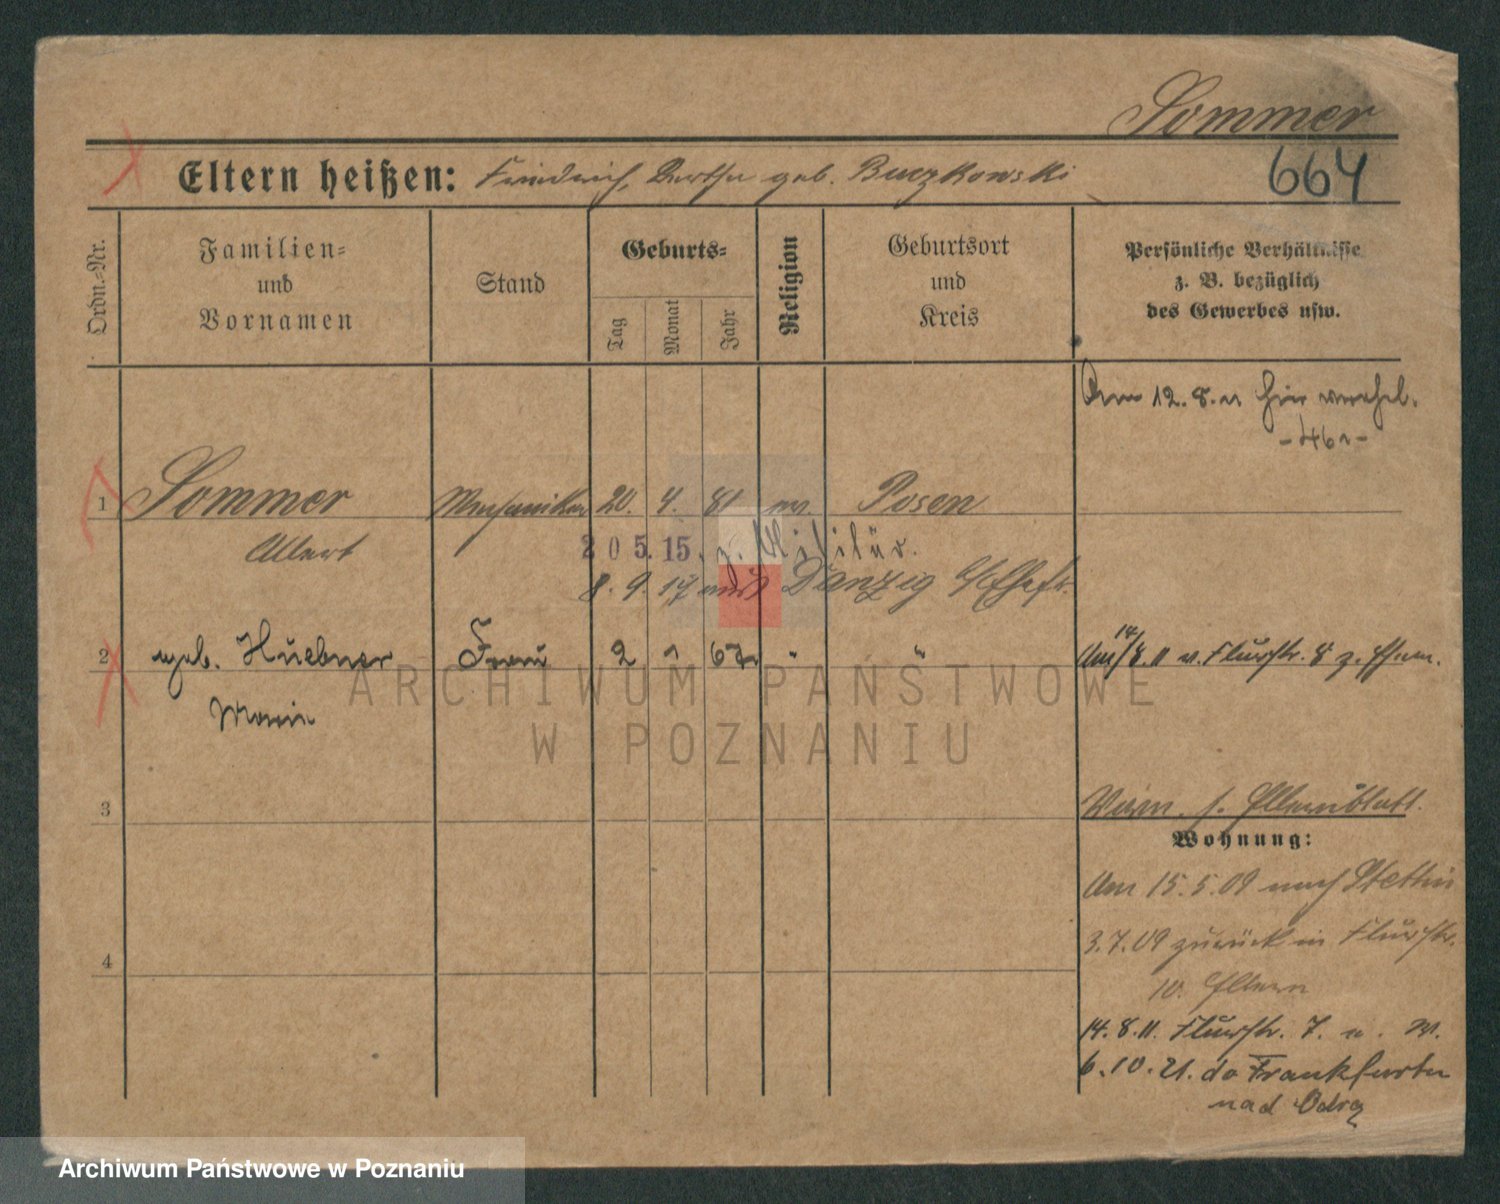 Sommer
664
Eltern heißen: Friedrich, Bertha geb. Buczkowski
Ordn.-Nr.
Familien- und Vornamen
Stand
Geburts-
Tag
Monat
Jahr
Religion
Geburtsort und Kreis
Persönliche Verhältnisse z. B. bezüglich des Gewerbes usw.
Am 12. 8. 11 hier verehel.
1 Sommer Mechaniker 20. 4. 81 ev. Posen
Albert
20 5. 15. z. Militär.
8. 9. 17 aus Danzig
2 geb. Huebner Frau 2 " "
Maria
Am 14/8. 11 v. Flurstr. 8 z.
3
Vorm. s. Elternblatt.
Wohnung:
Am 15. 5. 09 nach Stettin
3. 7. 09 zurück in Flurstr.
10. Eltern
4
14. 8. 11. Flurstr. 7.
6. 10. 21. do Frankfurtu
nad Odrą
ARCHIWUM PAŃSTWOWE
W POZNANIU
Archiwum Państwowe w Poznaniu